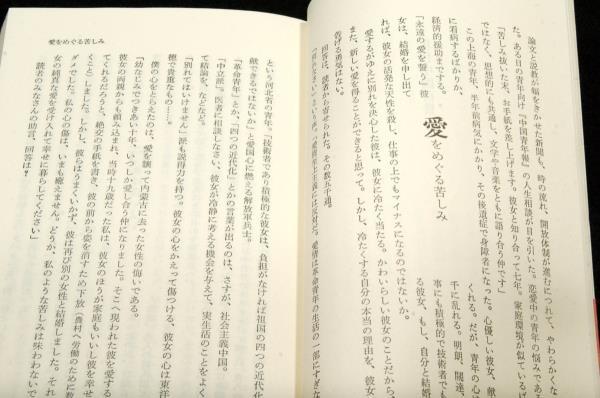 論文と説教が幅をきかせた新聞も、時の流れ、開放体制が進むにつれて、やわらかくな
た。ある日の青年向け『中国青年報』の人生相談が目を引いた。恋愛中の青年の悩みである
「苦しみ抜いた末、お手紙を差し上げます。彼女と知り合って七年。家庭環境が似ている
ではなく、思想的にも共通し、文学や音楽をともに語り合う仲です」
この上海の青年、半年前病気にかかり、その後遺症で身障者になった。心優しい彼女、献
に看病するばかりか、
経済的援助までする。
「永遠の愛を誓う」彼
女は、結婚を申し出て
愛をめぐる苦しみ
くれる。だが、青年の心
千に乱れる。明朗、闊達、
事にも積極的で技術者
る彼女、もし、自分と結婚
彼女の活発な現実性を殺し、仕事の上でもマイナスになるのではないか。
愛するがゆえに別れを決心した彼は、彼女に冷たく当たる。かわいらしい彼女のことだから、
また、新しい愛を得ることができると思って。しかし、冷たくする自分の本当の理由を、彼女
告げる勇気はない。
回答は、読者から寄せられた。その数五千通。
愛情至上主義には反対だ。愛情は革命青年の生活の一部にすぎな
愛をめぐる苦しみ
という河北省の青年。「技術者であり積極的な彼女は、負担がなければ祖国の四つの近代化
献できるではないか」と愛国心に燃える解放軍兵士。
「革命青年」とか、「四つの近代化」とかの言葉が出るのは、さすが、社会主義中国。
「中立派」。医者に相談しなさい、彼女が冷静に考える機会を与えて、実生活のことをよく
て結論を、などなど。
「別れてはいけません」派も説得力を持つ。彼女の心をかえって傷つける、彼女の心は東洋
徳で貴重なもの……。
僕の心をとらえたのは、愛を譲って内蒙古に去った女性の悔いである。
「幼なじみでつきあい十年、いつしか愛し合う仲になりました。そこへ現われた彼を愛する
彼女の両親からも頼み込まれ、当時十九歳だった私は、彼女のほうが家庭もいいし彼を幸せ
てくれるだろうと、絶交の手紙を書き、彼の前から姿を消すため下放(農村へ労働のために
く)としました。しかし、彼らはうまくいかず、彼は再び別の女性と結婚しました。それ
ダメでした。私の心の傷は、いまも癒えません。どうか、私のような苦しみは味わわないで
女の純真な愛を受け入れて幸せに暮らしてください」
読者のみなさんの助言、回答は?